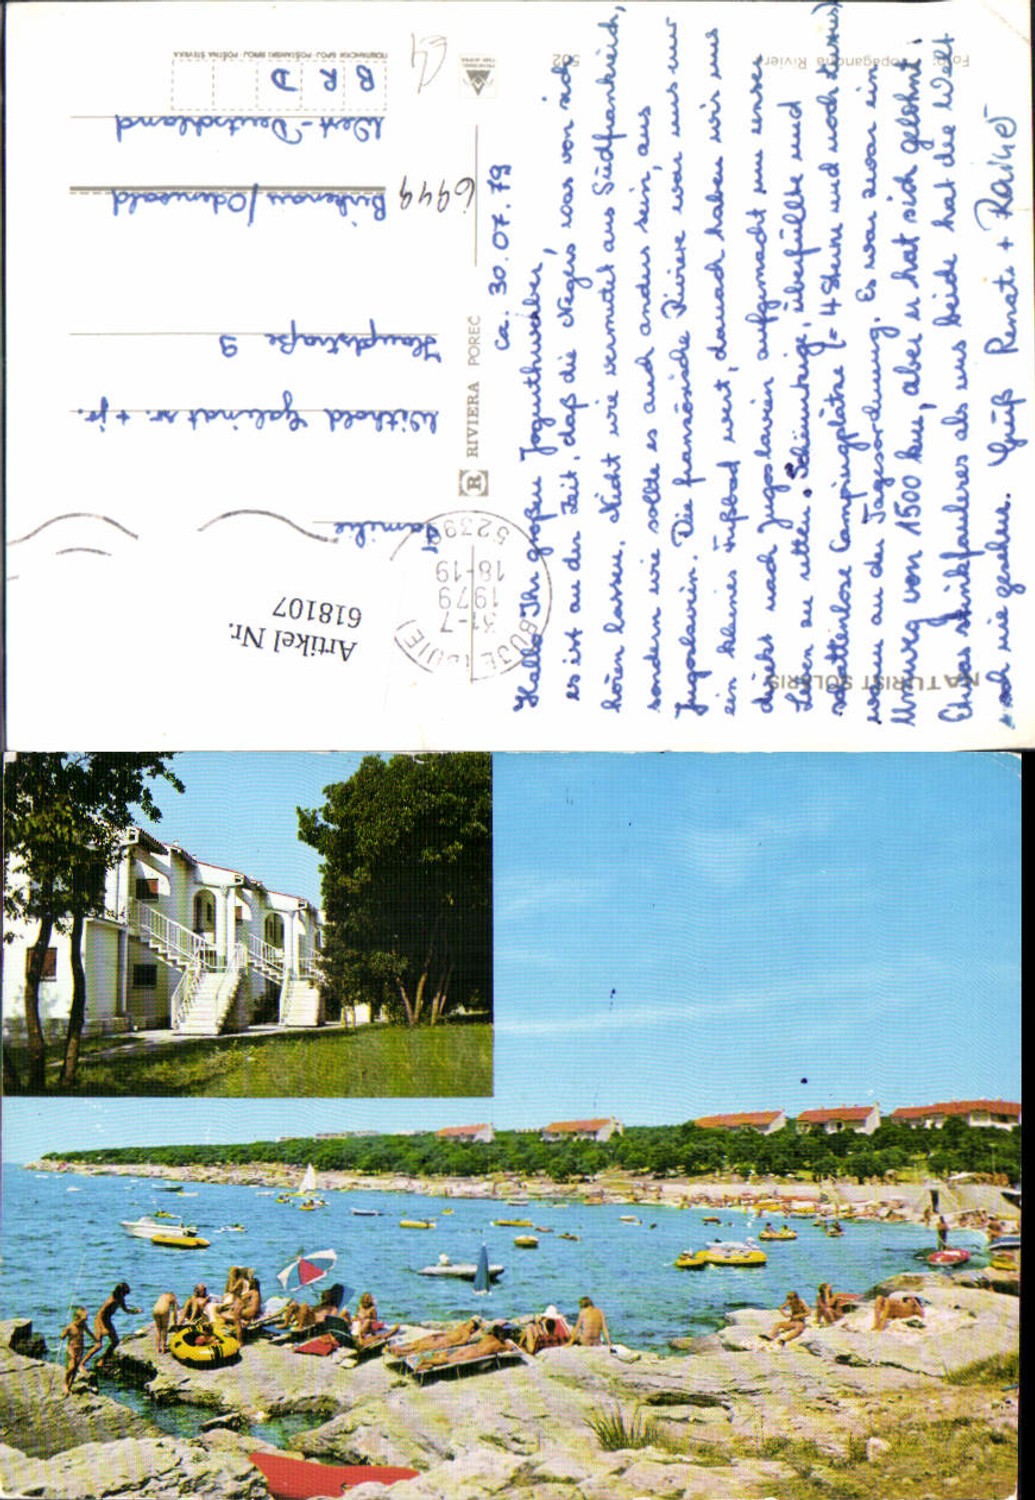 Hallo Ihr großen Jogurthweiber,
ca. 30.07.79
es ist an der Zeit, daß die Negers was von sich
hören lassen. Nicht wie vermutet aus Südfrankreich,
sondern wie sollte es auch anders sein, aus
Jugoslavien. Die französische Riviera war uns nur
ein kleines Fußbad wert, danach haben wir uns
direkt nach Jugoslavien aufgemacht um unser
Leben zu retten. Schäumige, überfüllte und
schattenlose Campingplätze (= 4 Sterne und noch Luxus)
waren an der Tagesordnung. Es war zwar ein
Umweg von 1500 km, aber er hat sich gelohnt!
Etwas stinkfauleres als uns beide hat die Welt
noch nie gesehen. Gruß Renate + Rainer
NATURIST SOLARIS
Foto: Propaganda Rivier
502
R RIVIERA POREČ
BUJE (BUIE)
31-7
1979
18-19
52390
Familie
Withold Galinat sr. + jr.
Hauptstraße 9
6949
Birkenau/Odenwald
West-Deutschland
B R D
POŠTANSKI BROJ · POŠTNA ŠTEVILKA
Artikel Nr.
618107